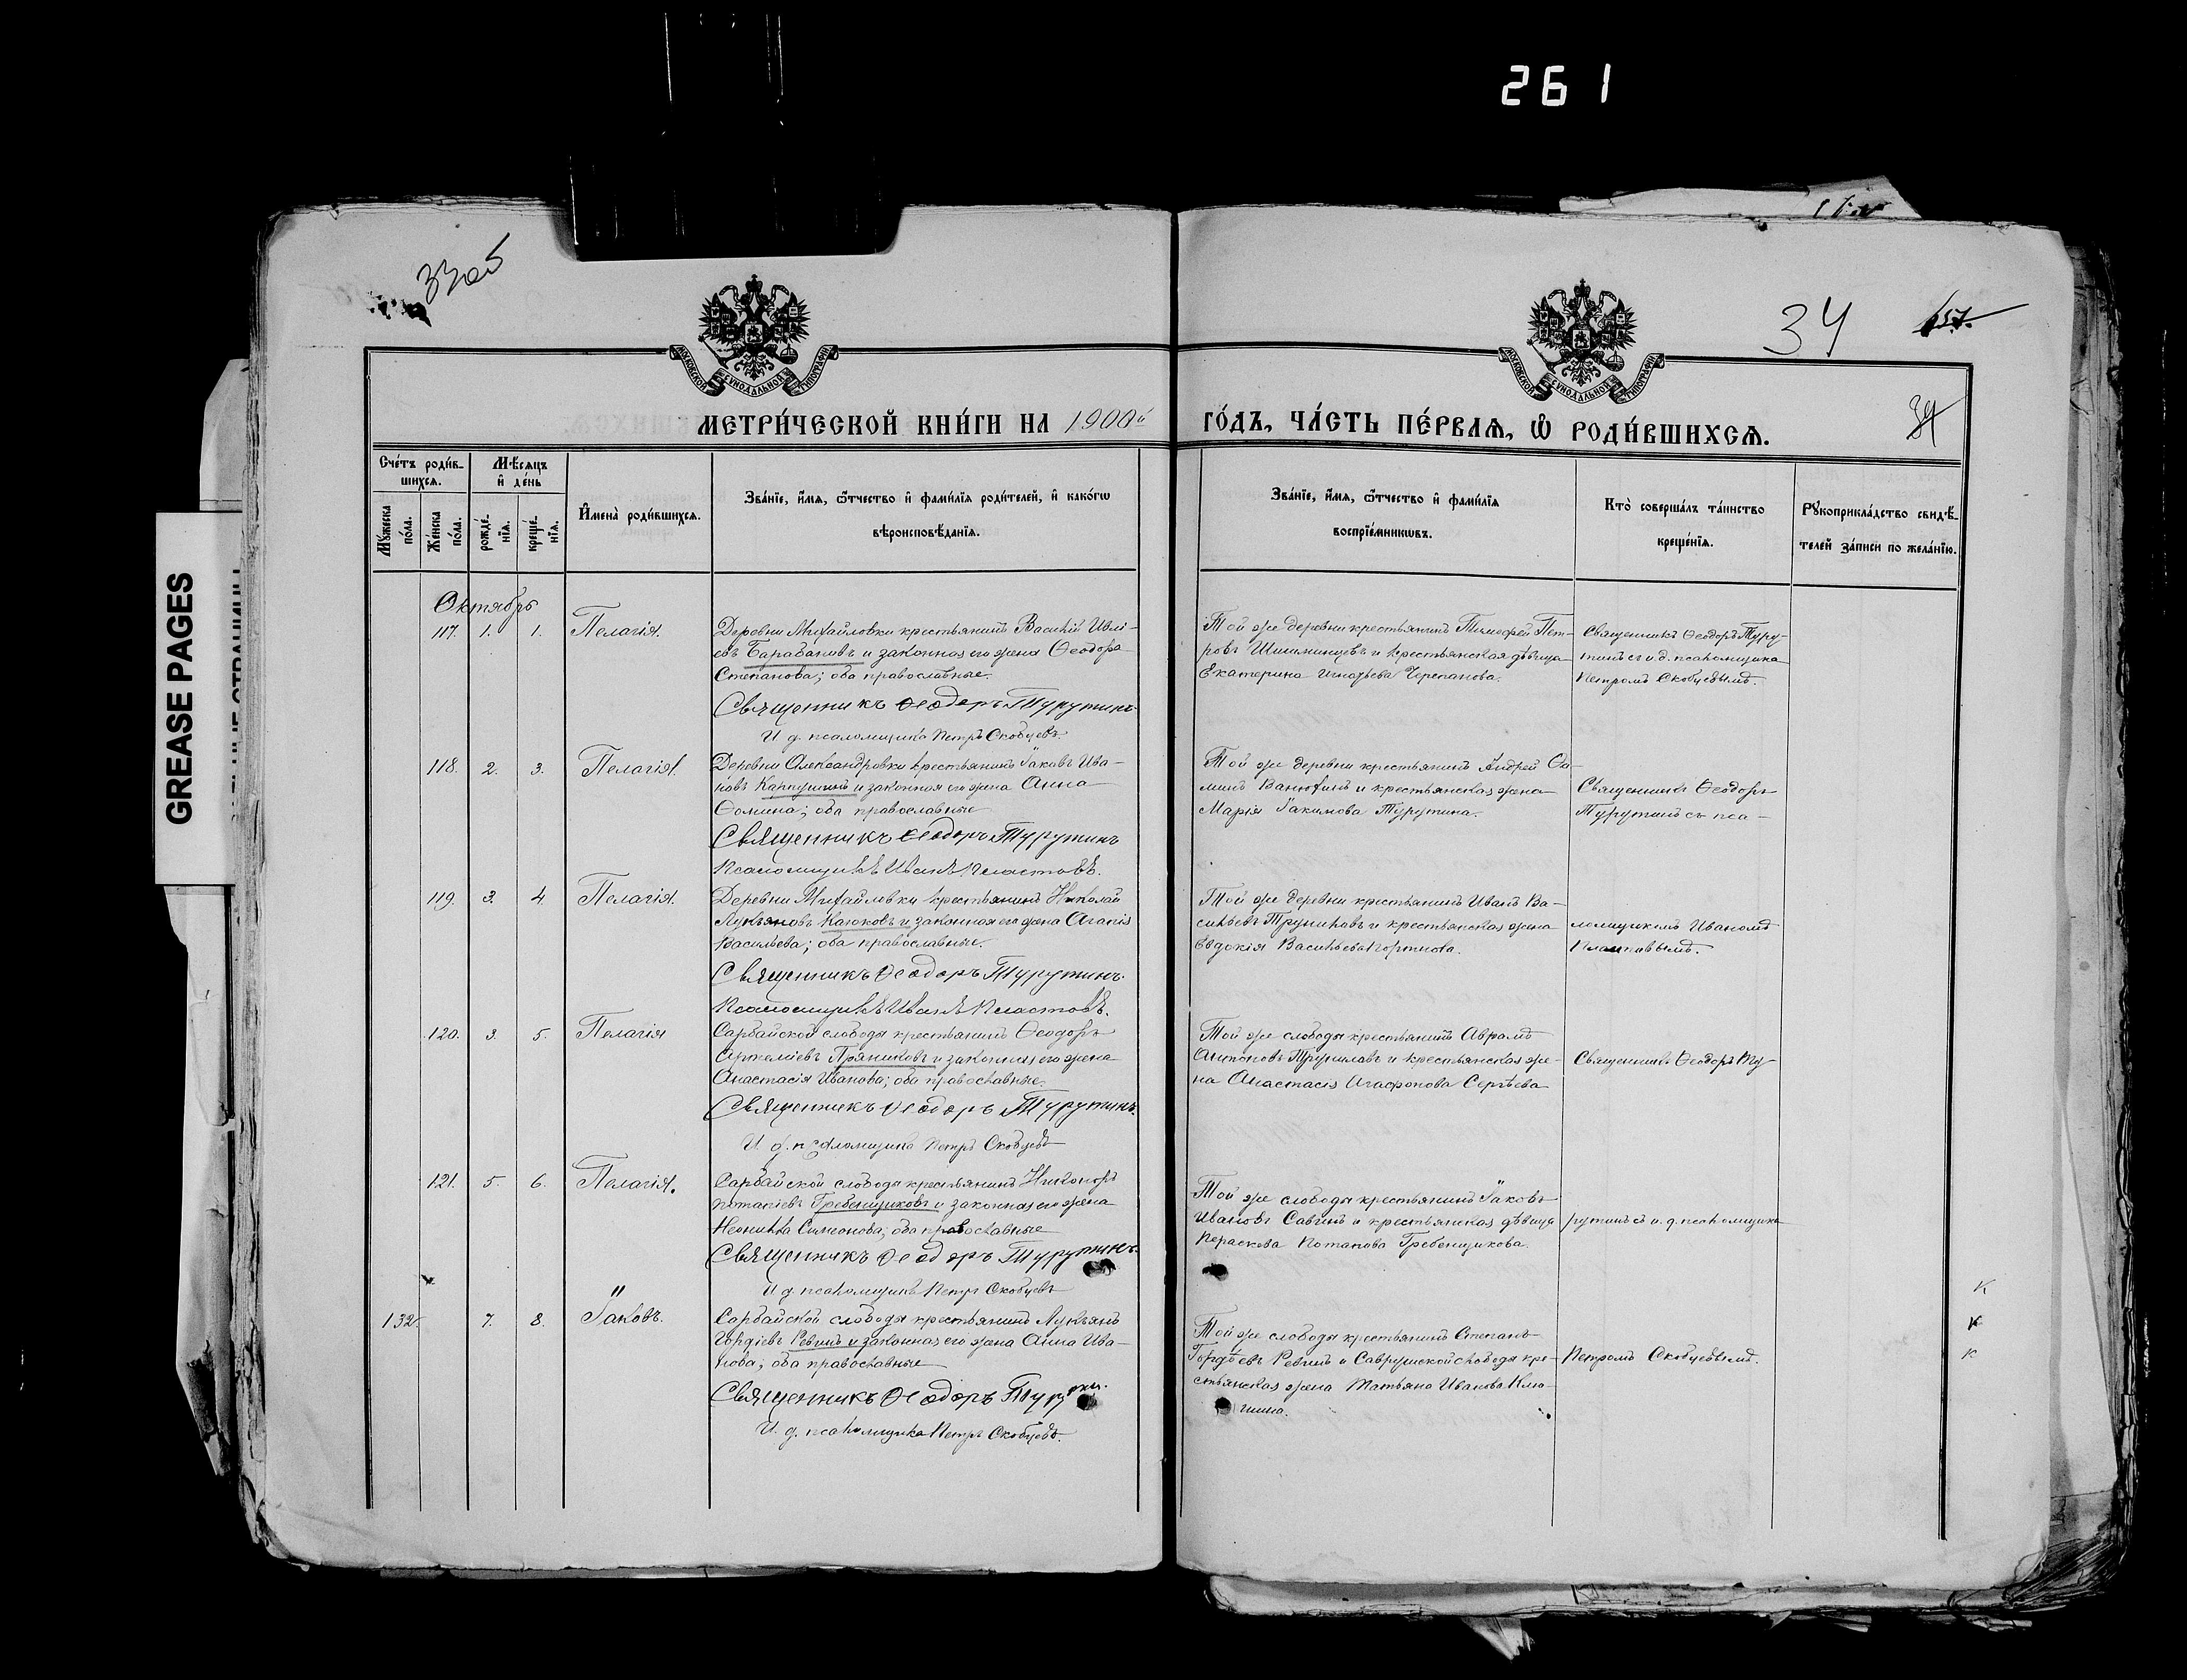 261
GREASE PAGES
33об
34
157.
34
МОСКОВСКОЙ СѴНОДАЛЬНОЙ ТИПОГРАФІИ
МОСКОВСКОЙ СѴНОДАЛЬНОЙ ТИПОГРАФІИ
МЕТРИ́ЧЕСКОЙ КНИ́ГИ НА 1900й
ГО́ДЪ, ЧА́СТЬ ПЕ́РВАѦ, Ѡ҆ РОДИ́ВШИХСѦ.
Сче́тъ роди́в-
шихсѧ.
Мꙋ́жеска по́ла.
Же́нска по́ла.
Мѣ́сѧцъ и҆ де́нь
рожде́-
нїѧ.
креще́-
нїѧ.
И҆мена̀ роди́вшихсѧ.
Зва́нїе, и҆́мѧ, ѻ҆́тчество и҆ фами́лїѧ роди́телей, и҆ како́гѡ
вѣроисповѣ́данїѧ.
Зва́нїе, и҆́мѧ, ѻ҆́тчество и҆ фами́лїѧ
воспрїе́мникѡвъ.
Кто̀ соверша́лъ та́инство
креще́нїѧ.
Рꙋкоприкла́дство свидѣ́-
телей за́писи по жела́нїю.
Октябрь
117. 1. 1. Пелагія.
Деревни Михайловки крестьянинъ Василій Ивлі-
евъ Барабановъ и законная его жена Ѳеодора
Степанова; оба православные.
Священникъ Ѳеодоръ Турутинъ
И. д. псаломщика Петръ Скобцевъ.
Той же деревни крестьянинъ Тимофей Пет-
ровъ и крестьянская дѣвица
Екатерина Игнатьева Черепанова.
Священникъ Ѳеодоръ Туру-
тинъ съ и. д. псаломщика
Петромъ Скобцевымъ.
118. 2. 3. Пелагія.
Деревни Александровки крестьянинъ Іаковъ Ива-
новъ Карпушинъ и законная его жена Анна
Ѳомина; оба православные
Священникъ Ѳеодоръ Турутинъ
Псаломщикъ Иванъ Пластовъ.
Той же деревни крестьянинъ Андрей Ѳо-
минъ Ванюхинъ и крестьянская жена
Марія Іакимова Турутина.
Священникъ Ѳеодоръ
Турутинъ съ пса-
119. 3. 4. Пелагія.
Деревни Михайловки крестьянинъ Николай
Лукьяновъ Каюковъ и законная его жена Агапія
Васильева; оба православные.
Священникъ Ѳеодоръ Турутинъ.
Псаломщикъ Иванъ Пластовъ.
Той же деревни крестьянинъ Иванъ Ва-
сильевъ и крестьянская жена
Евдокія Васильева
ломщикомъ Иваномъ
Пластовымъ.
120. 3. 5. Пелагія
Сарбайской слободы крестьянинъ Ѳеодоръ
Артеміевъ Пряниковъ и законная его жена
Анастасія Иванова; оба православные.
Священникъ Ѳеодоръ Турутинъ.
И. д. псаломщика Петръ Скобцевъ
Той же слободы крестьянинъ Аврамъ
Антоновъ и крестьянская же-
на Анастасія Агафонова Сергѣева
Священникъ Ѳеодоръ Ту-
121. 5. 6. Пелагія.
Сарбайской слободы крестьянинъ Никоноръ
Потапіевъ Гребенщиковъ и законная его жена
Неонила Симеонова; оба православные
Священникъ Ѳеодоръ Турутинъ.
И. д. псаломщика Петръ Скобцевъ
Той же слободы крестьянинъ Іаковъ
Ивановъ Савинъ и крестьянская дѣвица
Параскева Потапова Гребенщикова.
рутинъ съ и. д. псаломщика
132. 7. 8. Іаковъ.
Сарбайской слободы крестьянинъ Лукьянъ
Гордіевъ Ревинъ и законная его жена Анна Ива-
нова; оба православные
Священникъ Ѳеодоръ Турутин.
И. д. псаломщика Петръ Скобцевъ.
Той же слободы крестьянинъ Степанъ
Гордѣевъ Ревинъ и Саврушской слободы кре-
стьянская жена Татьяна Иванова Клю-
шина.
Петромъ Скобцевымъ.
К
К
К